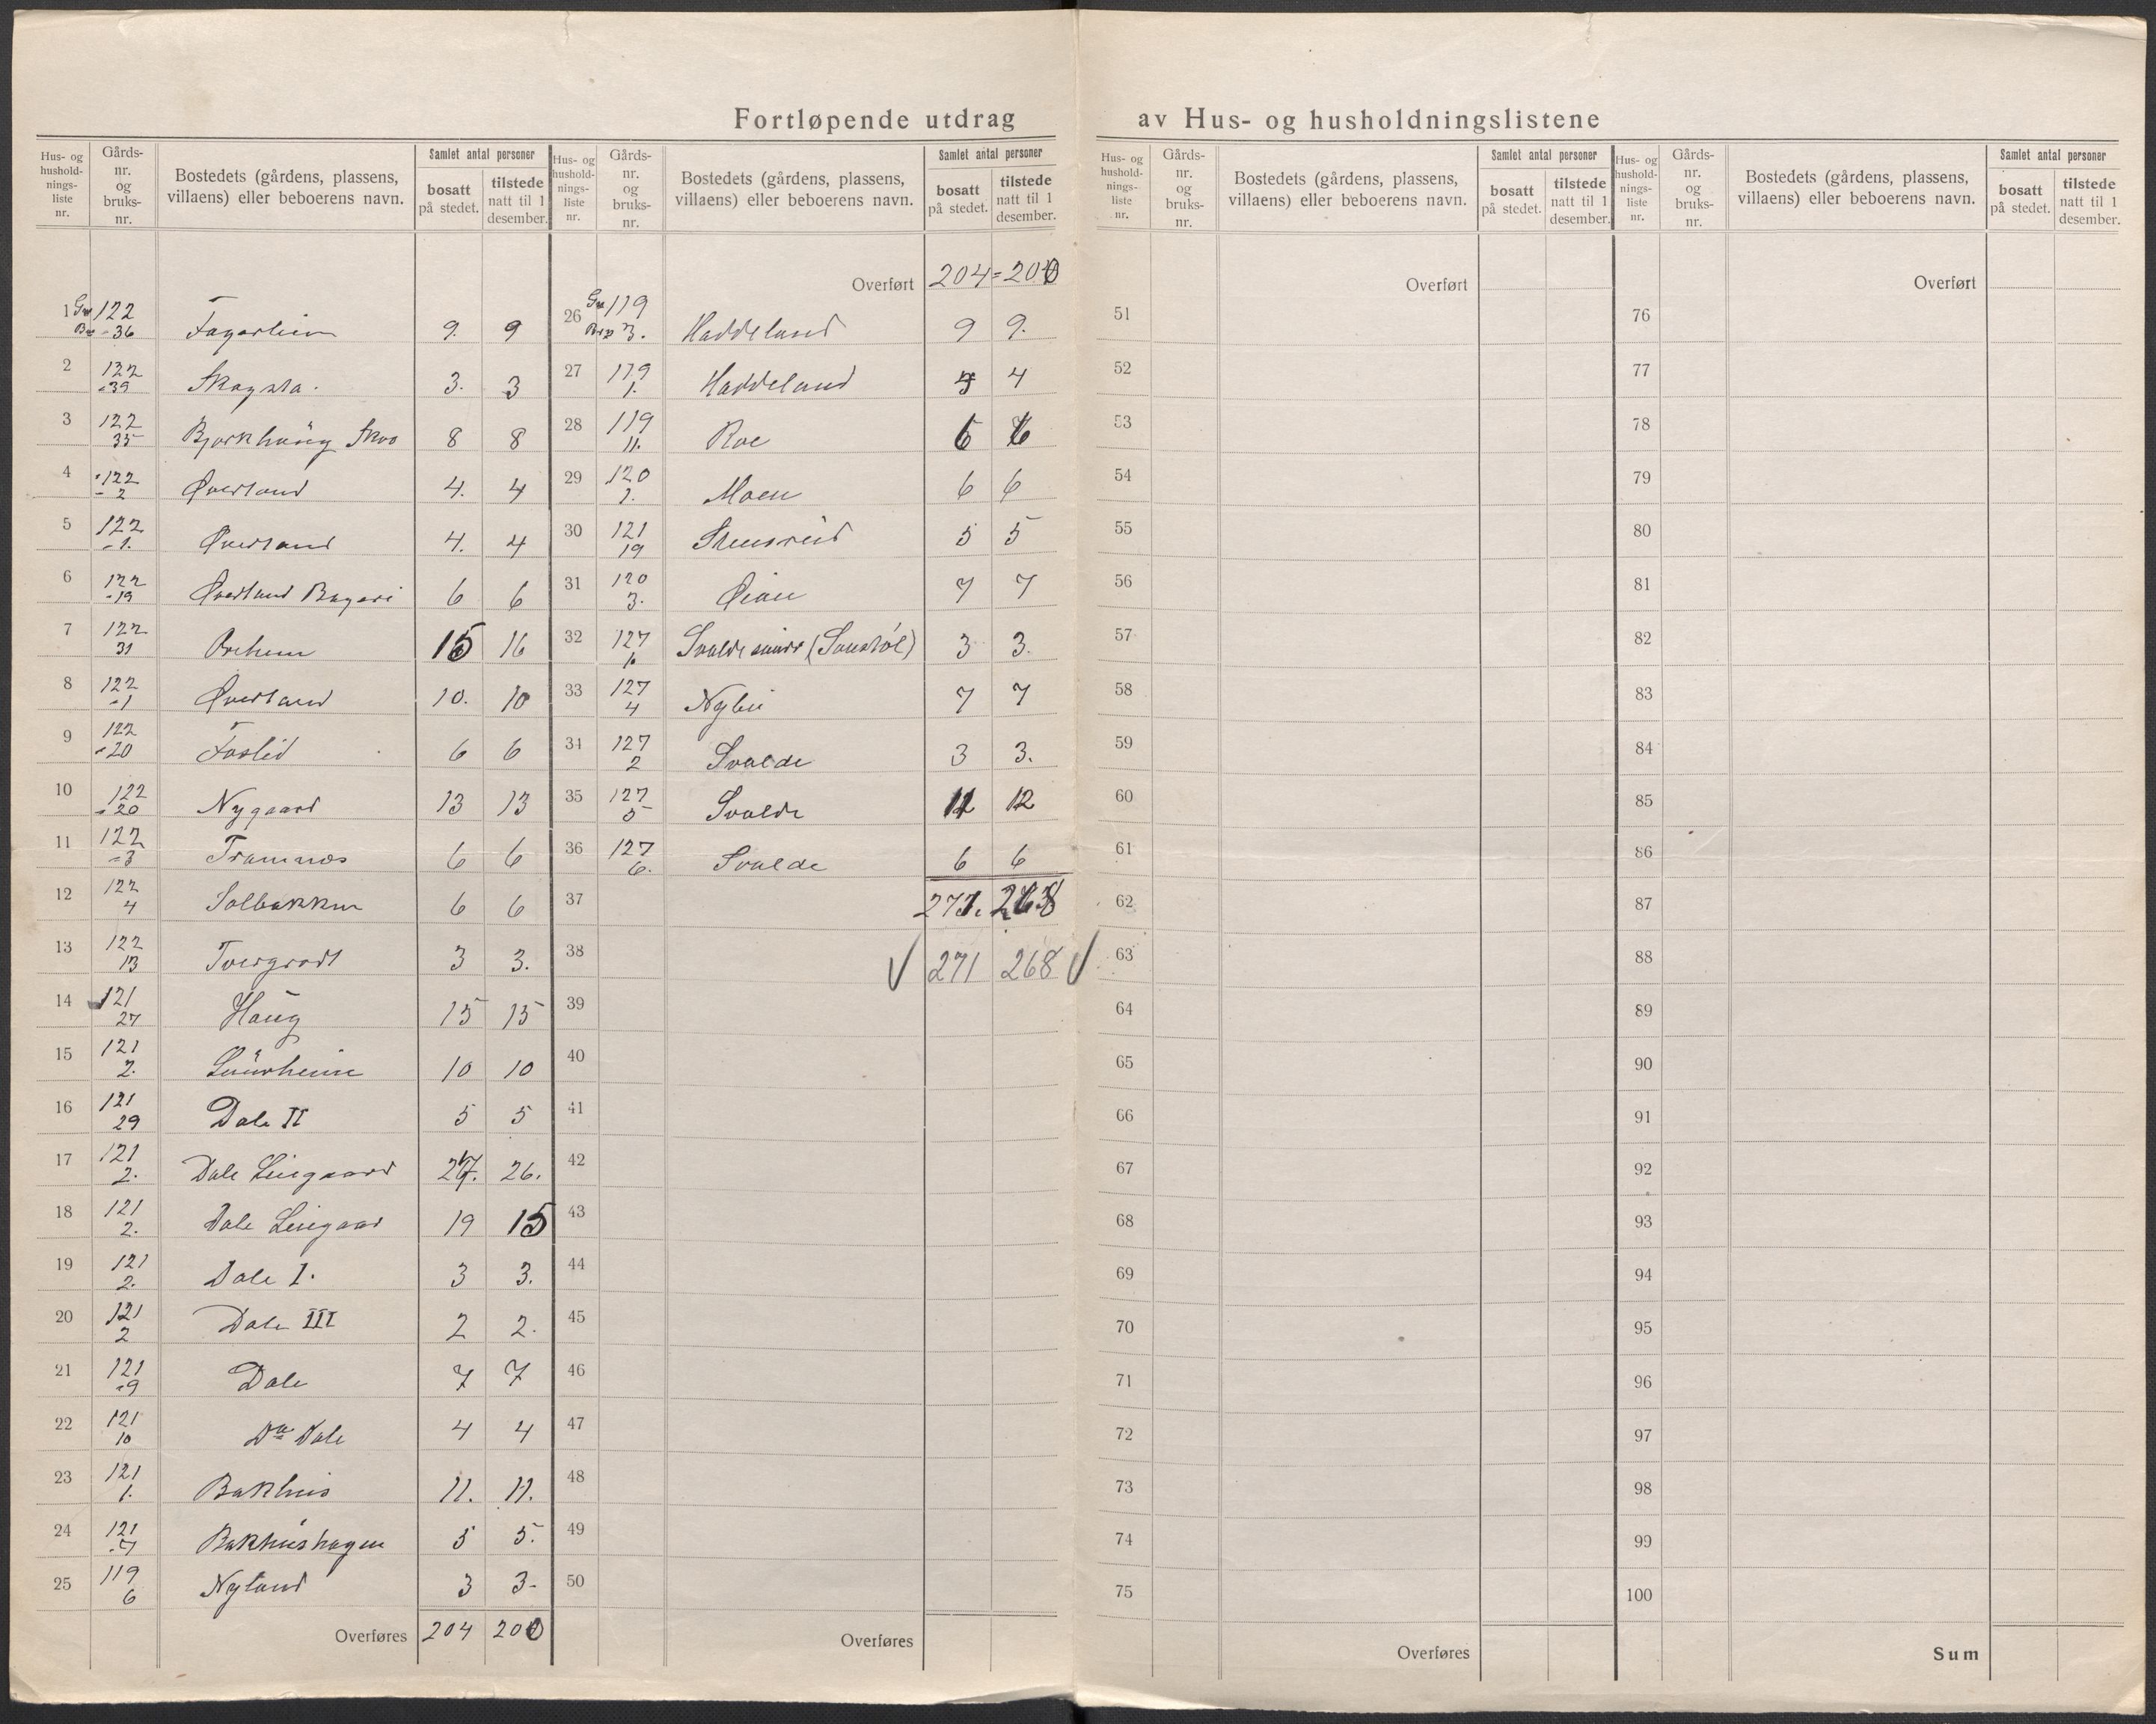 Fortløpende utdrag av Hus- og husholdningslistene
Hus- og husholdningsliste nr. | Gårds-nr. og bruks-nr. | Bostedets (gårdens, plassens, villaens) eller beboerens navn. | Samlet antal personer bosatt på stedet. | tilstede natt til 1 desember.
1 Gnr 122 Bnr 36 Fagerheim 9. 9
2 122 39 Skogsta. 3. 3
3 122 35 Bjørkhaug 8 8
4 122 2 Øverland 4. 4
5 122 1. Øverland 4. 4
6 122 19 Øverland Bageri 6 6
7 122 31 15 16
8 122 1 Øverland 10. 10
9 122 20 Foslid 6 6
10 122 20 Nygaard 13 13
11 122 3 Framnes 6 6
12 122 4 Solbakken 6 6
13 122 13 3 3.
14 121 27 Haug 15 15
15 121 2. 10 10
16 121 29 Dale II 5 5
17 121 2. Dale 27. 26.
18 121 2. Dale 19 15
19 121 2. Dale I. 3 3.
20 121 2 Dale III 2 2.
21 121 9 Dale 7 7
22 121 10 Do Dale 4 4
23 121 1. Bakhus 11. 11.
24 121 7 Bakhushagen 5 5.
25 119 6 Nyland 3 3-
Overføres 204 200
Hus- og husholdningsliste nr. | Gårds-nr. og bruks-nr. | Bostedets (gårdens, plassens, villaens) eller beboerens navn. | Samlet antal personer bosatt på stedet. | tilstede natt til 1 desember.
Overført 204 = 200
26 Gnr 119 Bnr 3. Haddeland 9 9.
27 119 1. Haddeland 4
28 119 11. Roe 6 6
29 120 1. Moen 6 6
30 121 19 5 5
31 120 3. Øian 7 7
32 127 1. Svalde 3 3.
33 127 4 Nylii 7 7
34 127 2 Svalde 3 3.
35 127 5 Svalde 12
36 127 6. Svalde 6 6
37 271. 268
38 271 268
39
40
41
42
43
44
45
46
47
48
49
50
Overføres
Hus- og husholdningsliste nr. | Gårds-nr. og bruks-nr. | Bostedets (gårdens, plassens, villaens) eller beboerens navn. | Samlet antal personer bosatt på stedet. | tilstede natt til 1 desember.
Overført
51
52
53
54
55
56
57
58
59
60
61
62
63
64
65
66
67
68
69
70
71
72
73
74
75
Overføres
Hus- og husholdningsliste nr. | Gårds-nr. og bruks-nr. | Bostedets (gårdens, plassens, villaens) eller beboerens navn. | Samlet antal personer bosatt på stedet. | tilstede natt til 1 desember.
Overført
76
77
78
79
80
81
82
83
84
85
86
87
88
89
90
91
92
93
94
95
96
97
98
99
100
Sum